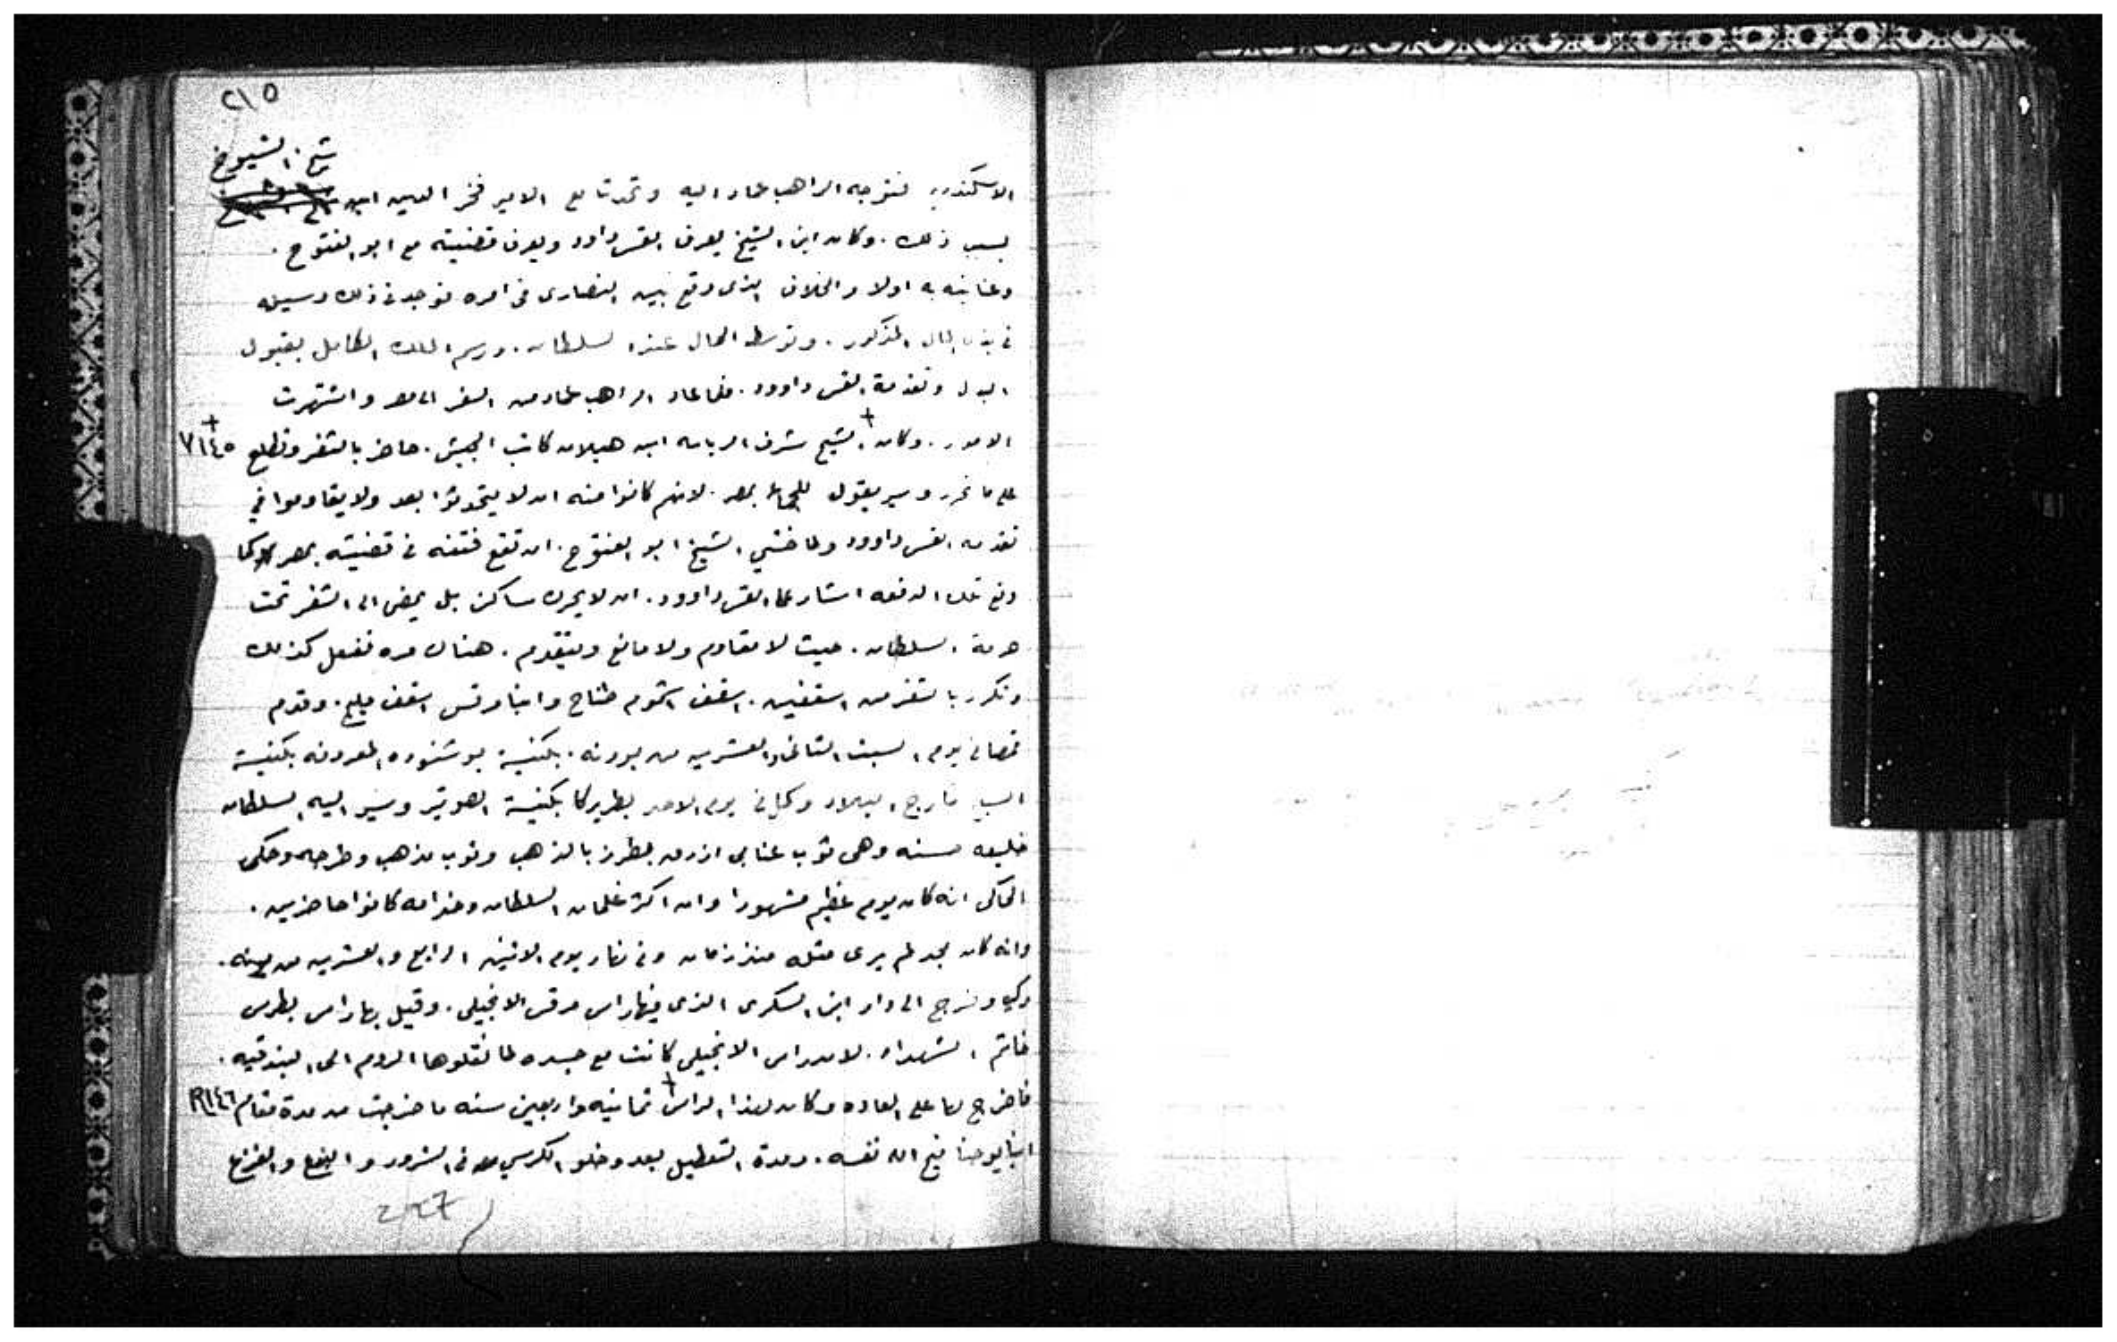 ٢١٥
شيخ الشيوخ
الاسكندريه فتوجه الراهب عماد اليه وتحدثا مع الامير فخر الدين ابن
بسبب ذلك . وكان ابن الشيخ يعرف القس داود ويعرف قضيته مع ابو الفتوح .
وعنايته به اولا والخلاف الذى وقع بين النصارى فى امره فوجد فى ذلك وسيله
فى بذل المال المذكور . وتوسط الحال عند السلطان . ورسم الملك الكامل بقبول
البدل وتقدمة القس داوود . فلما عاد الراهب عماد من السفر الى مصر واشتهرت
الامور . وكان الشيخ شرف الرياسه ابن هبلان كاتب الجيش . حاضر بالثغر وتطلع ٧١٤٥
على ما تحرر وسير يقول للجماعه بمصر . لانهم كانوا منه ان لا يتحدثوا بعد ولا يقاوموا في
تقدمه القس داوود ولما خشي الشيخ ابو الفتوح . ان تقع فتنه فى قضيته بمصر كما
وقع تلك الدفعه اشار على القس داوود . ان لا يحرك ساكن بل يمضى الى الثغر تحت
حرمة السلطان . حيث لا مقاوم ولا مانع ويتقدم . هناك مره ففعل كذلك
وتكرز بالثغر من اسقفين . اسقف اشموم طناح وانبا مرقس اسقف مليج . وقدم
قمصا فى يوم السبت الثانى والعشرين من بوونه . بكنيسة بوشنوده المعروفه بكنيسة
خارج البلاد وكمل فى يوم الاحد بطريركا بكنيسة السوتير وسير اليه السلطان
خليعه حسنه وهى ثوب عنابى ازرق مطرز بالذهب وثوب مذهب وطرحه وحكى
الحاكى انه كان يوم عظيم مشهودا وان اكثر غلمان السلطان وخدامه كانوا حاضرين .
وانه كان مجد لم يرى مثله منذ زمان وفى نهار يوم الاثنين الرابع والعشرين من بوونه .
ركب وخرج الى دار ابن السكرى الذى فيها راس مرقس الانجيلى . وقيل بها راس بطرس
خاتم الشهداء . لان راس الانجيلى كانت مع جسده لما نقلوها الروم الى البندقيه .
فاخرج لها على العاده وكان لهذا الراس ثمانيه واربعين سنه ما خرجت من مدة مقام
انبا يوحنا نيح الله نفسه . ومدة التعطيل بعد وخلو الكرسي